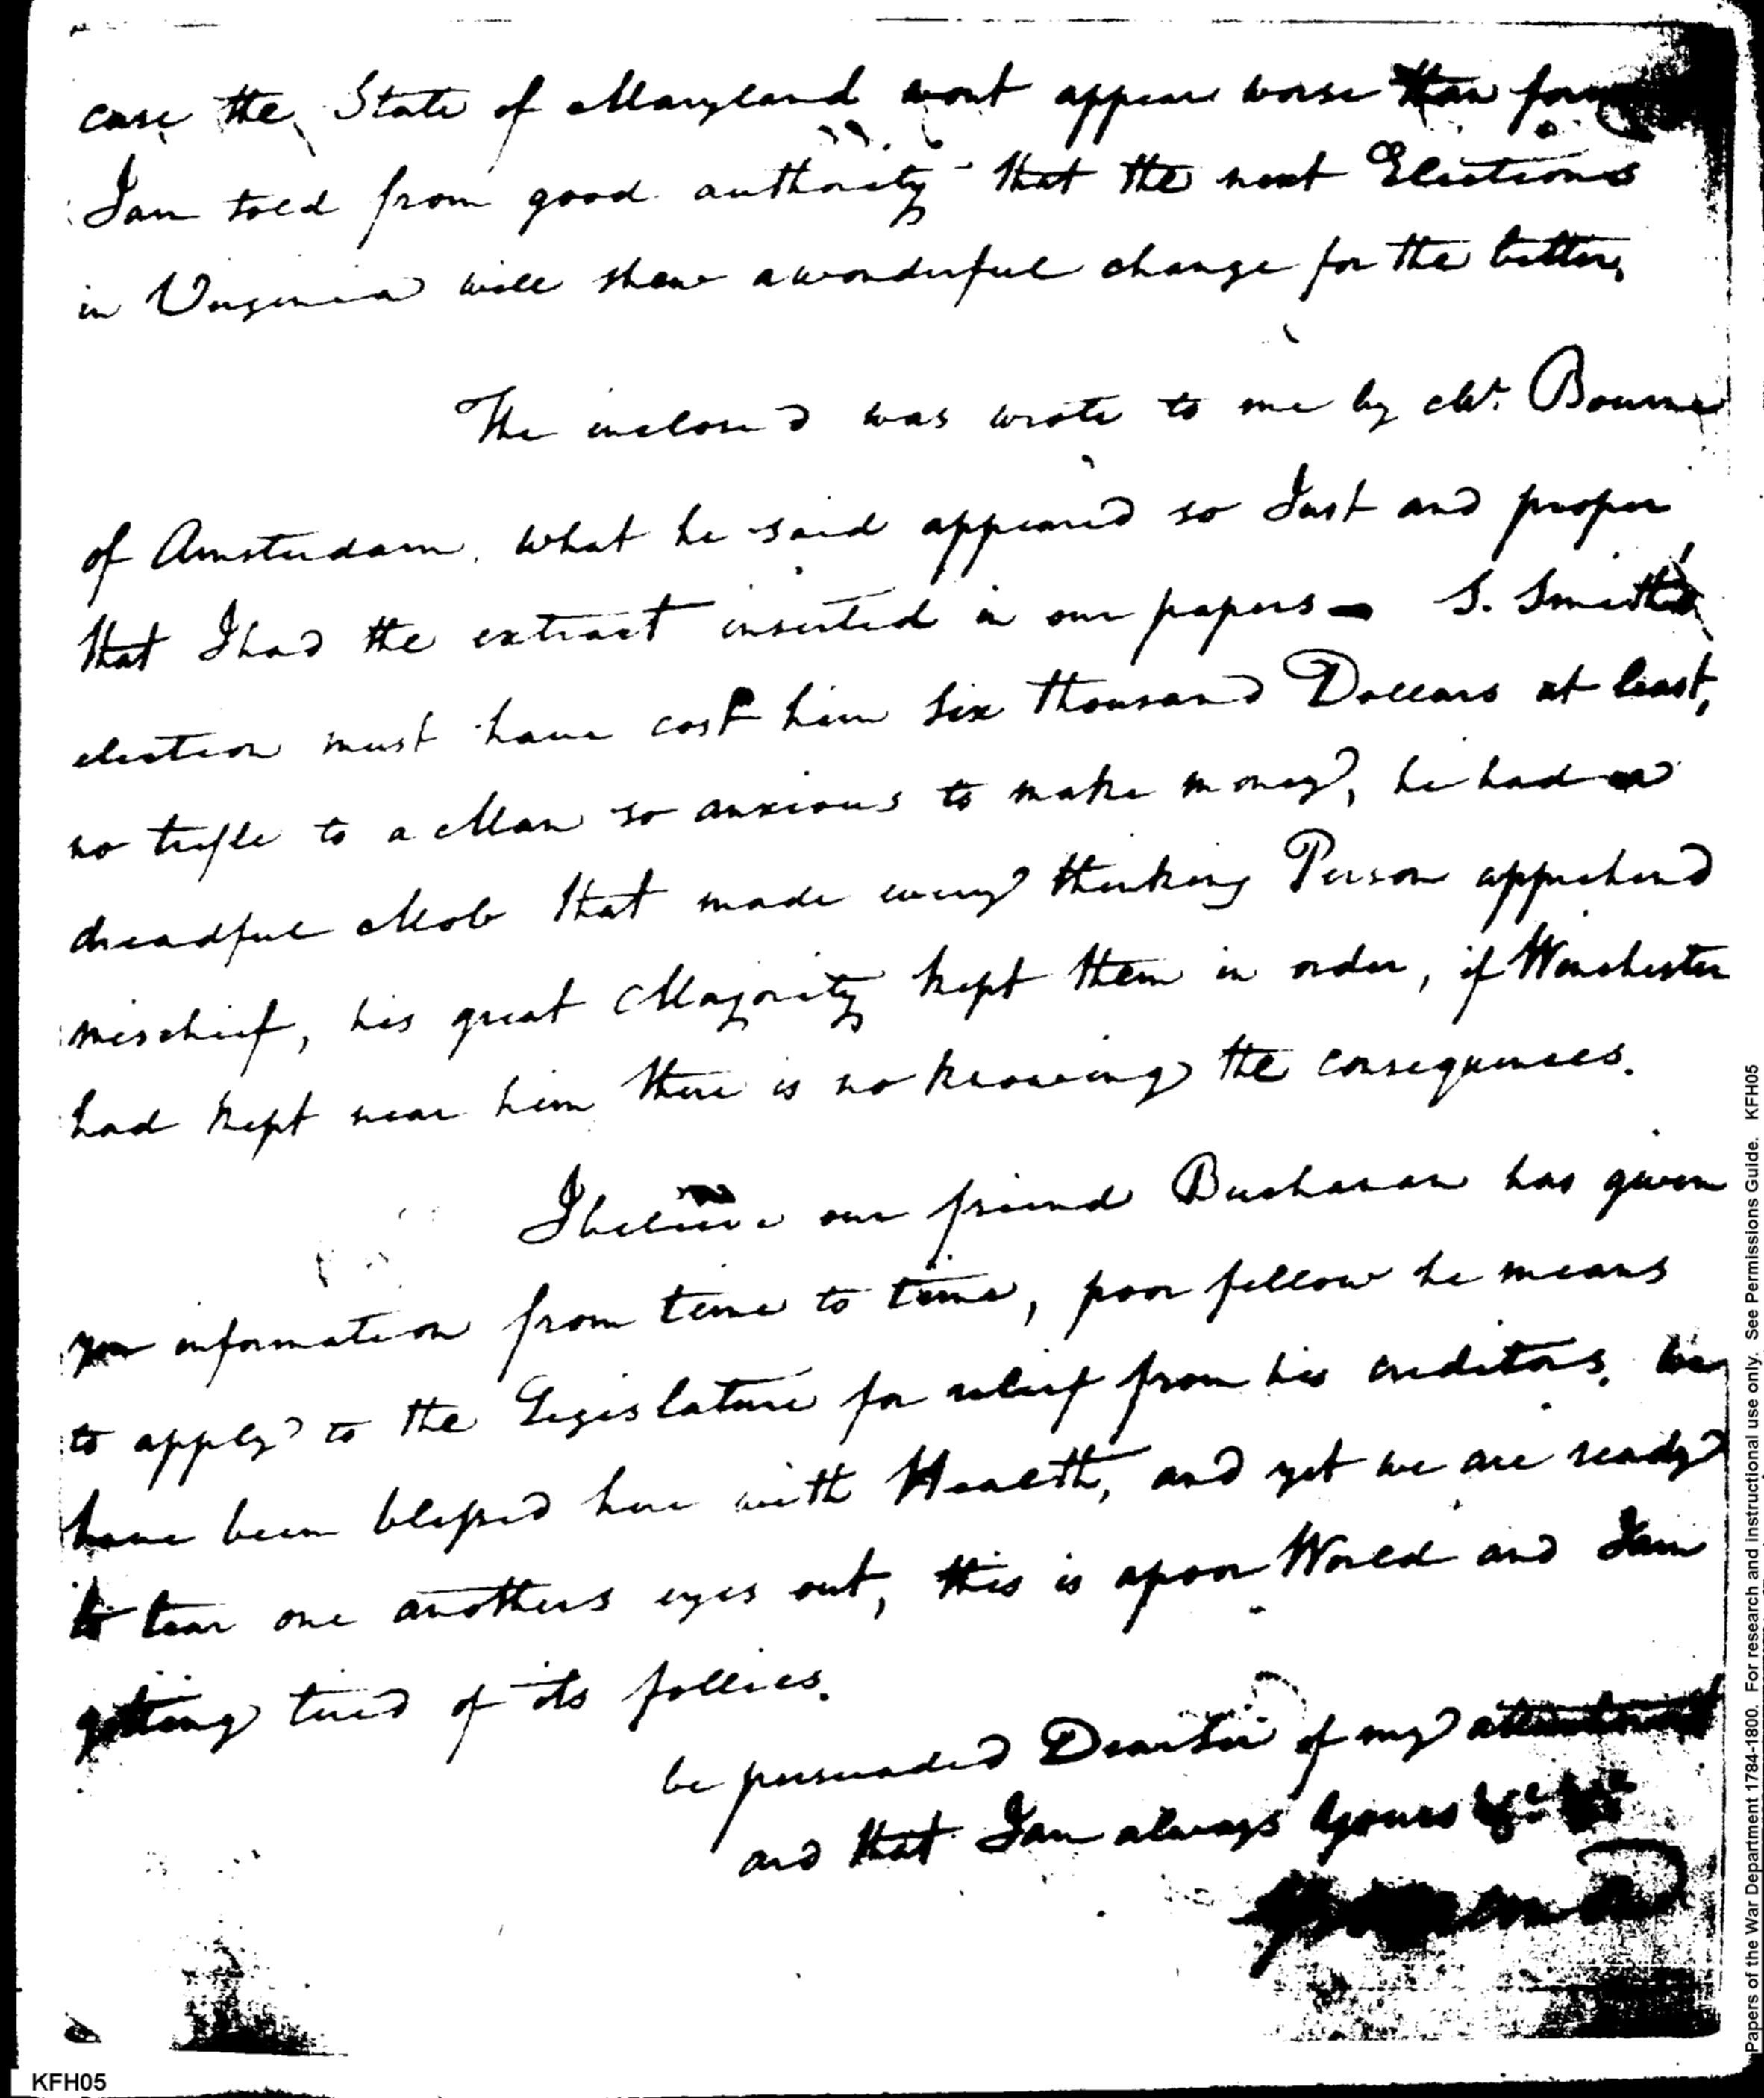 case the State of Maryland wont appear worse than
I am told from good authority that the next Elections
in Virginia will shew a wonderful change for the better,
The inclosed was wrote to me by Mr. Bourne
of Amsterdam, what he said appeared so Just and proper
that I had the extract inserted in our papers — S. Smith's
election must have cost him Six thousand Dollars at least,
no trifle to a Man so anxious to make money, he had a
dreadful Mob that made every thinking Person apprehend
mischief, his great Majority kept them in order, if Winchester
had kept near him there is no knowing the consequences.
I believe our friend Buchanan has given
you information from time to time, poor fellow he means
to apply to the Legislature for relief from his creditors. we
have been blessed here with Health, and yet we are ready
to tear one anothers eyes out, this is a poor World and I am
getting tired of its follies.
be persuaded Dear Sir of my attachment
and that I am always yours
KFH05
Papers of the War Department 1784-1800. For research and instructional use only. See Permissions Guide. KFH05